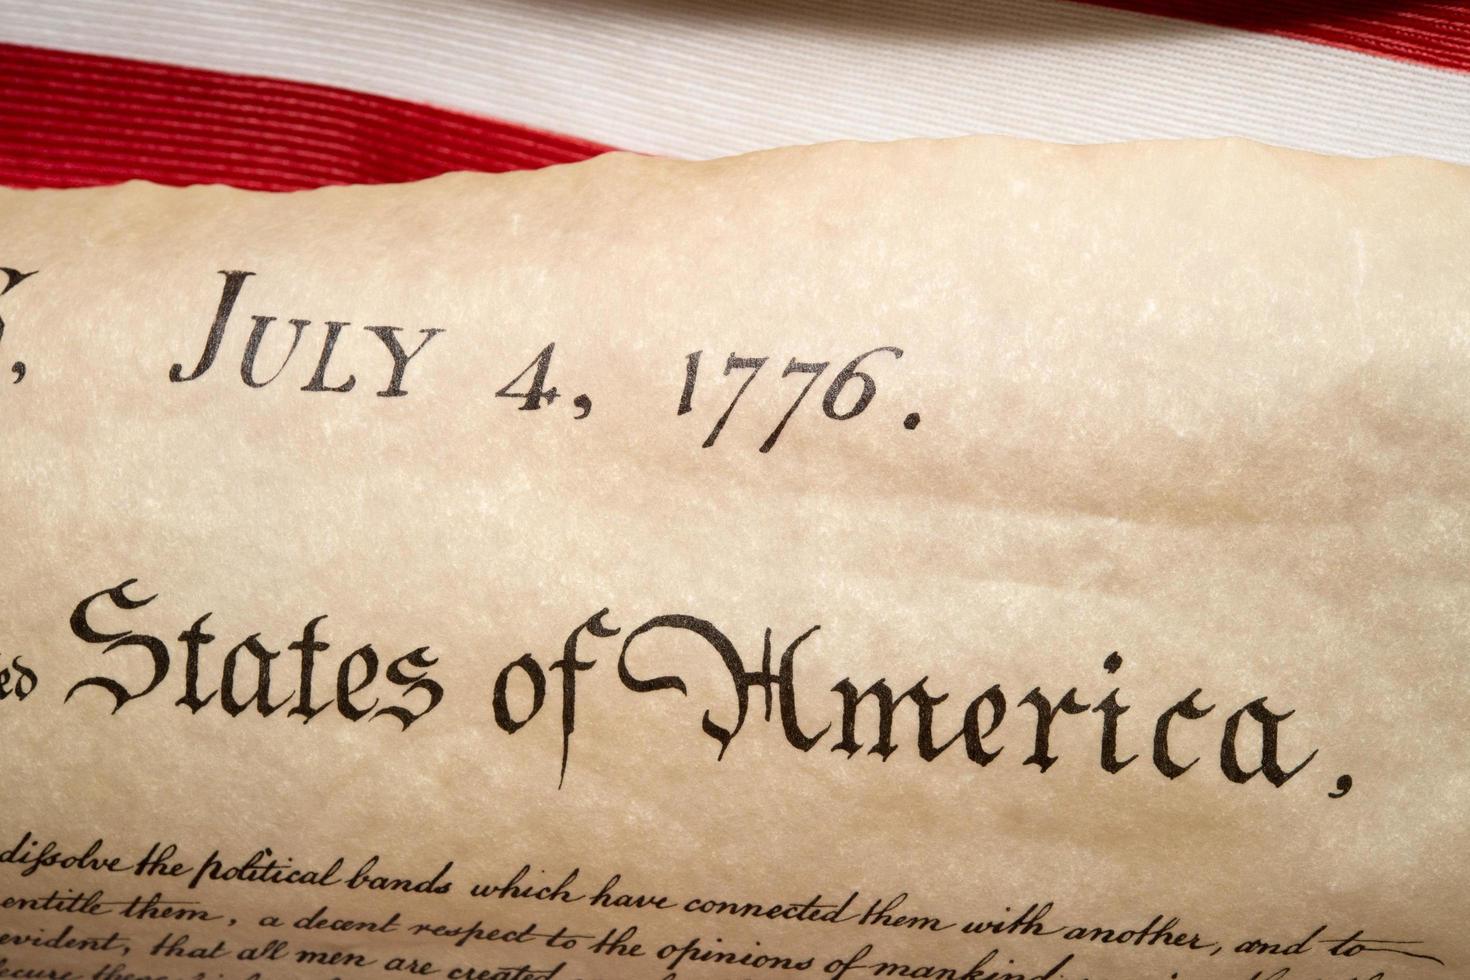 JULY 4, 1776.
ed States of America,
dissolve the political bands which have connected them with another, and to
entitle them, a decent respect to the opinions of mankind
evident, that all men are created